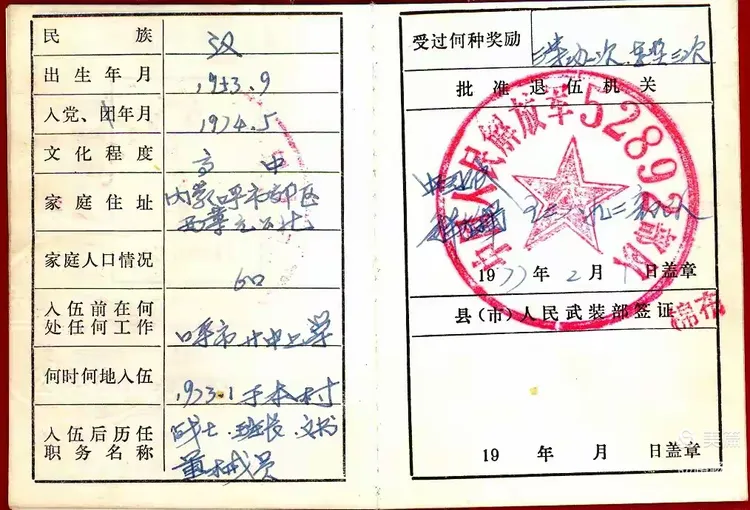 民族 汉
出生年月 1953.9
入党、团年月 1974.5
文化程度 高中
家庭住址 内蒙呼市郊区
公社
家庭人口情况 6口
入伍前在何
处任何工作 呼市 中上学
何时何地入伍 1973.1于本村
入伍后历任
职务名称 战士.班长.文书
械员
受过何种奖励
批准退伍机关
人民解放军52892部队
1977年2月1日盖章
县(市)人民武装部签证
(棉布
19 年 月 日盖章
美篇